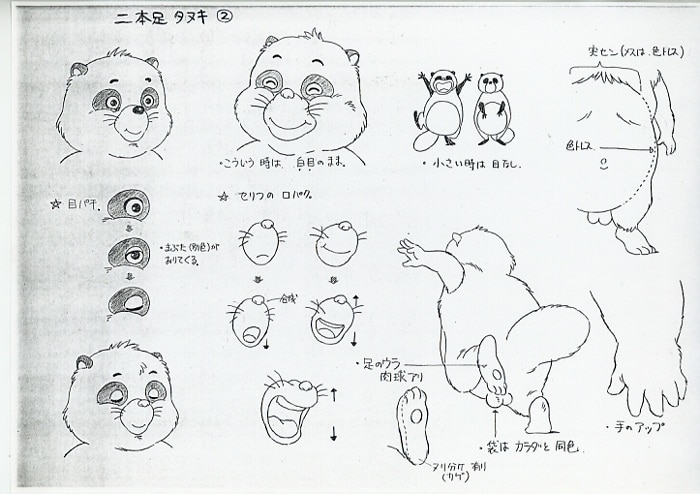 二本足 タヌキ ②
実セン(メスは、色トレス)
・こういう時は、白目のまま。
・小さい時は 目なし。
色トレス
☆ 目パチ。
☆ セリフの 口パク。
・まぶた(別色)が
おりてくる。
合成
・足のウラ
肉球アリ
・袋は カラダと 同色。
・手のアップ
ヌリ分ケ 有リ
(カゲ)